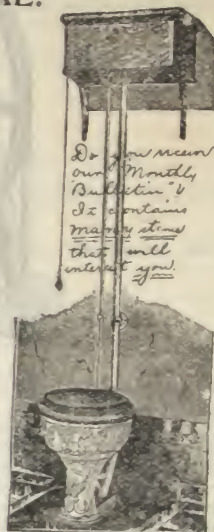 AL.
Do you receive
our "Monthly
Bulletin"?
It contains
many items
that will
interest you.